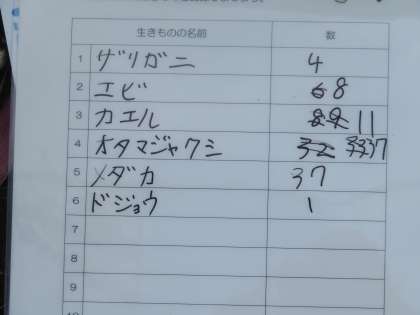 生きものの名前 数
1 ザリガニ 4
2 エビ 8
3 カエル 11
4 オタマジャクシ 37
5 メダカ 37
6 ドジョウ 1
7
8
9